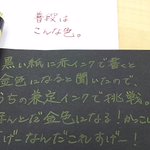 普段は
こんな色。
黒い紙に赤インクで書くと
金色になると聞いたので、
うちの兼定インクで挑戦。
ほんとだ金色になる!かっこいい
すげーなんだこれすげー!